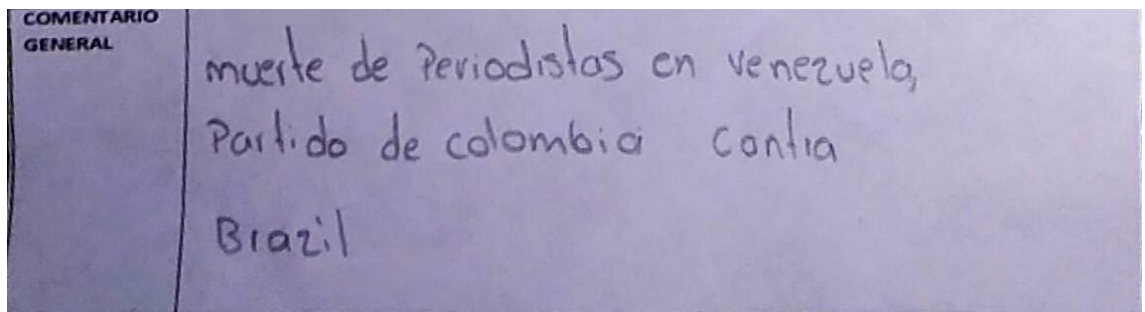 COMENTARIO
GENERAL
muerte de Periodistas en venezuela,
Partido de colombia contra
Brazil